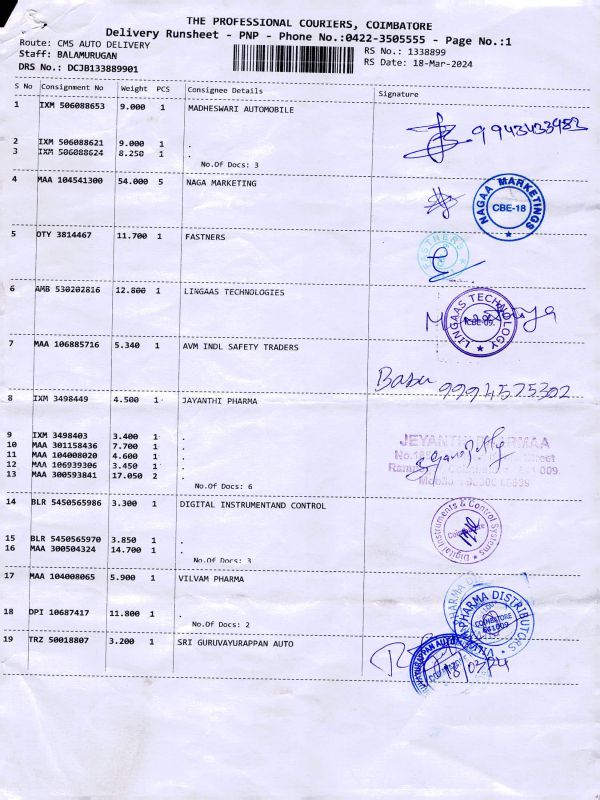 THE PROFESSIONAL COURIERS, COIMBATORE
Delivery Runsheet - PNP - Phone No.:0422-3505555 - Page No.:1
Route: CMS AUTO DELIVERY
RS No.: 1338899
Staff: BALAMURUGAN
RS Date: 18-Mar-2024
DRS No.: DCJB133889901
S No Consignment No Weight PCS Consignee Details Signature
1 IXM 506088653 9.000 1 MADHESWARI AUTOMOBILE
9943433982
2 IXM 506088621 9.000 1 .
3 IXM 506088624 8.250 1 .
No.Of Docs: 3
4 MAA 104541300 54.000 5 NAGA MARKETING
NAGAA MARKETINGS
CBE-18
5 OTY 3814467 11.700 1 FASTNERS
6 AMB 530202816 12.800 1 LINGAAS TECHNOLOGIES
LINGAAS TECHNOLOGY
CBE-09.
7 MAA 106885716 5.340 1 AVM INDL SAFETY TRADERS
Babu 9994525302
8 IXM 3498449 4.500 1 JAYANTHI PHARMA
9 IXM 3498403 3.400 1 .
10 MAA 301158436 7.700 1 .
11 MAA 104008020 4.600 1 .
12 MAA 106939306 3.450 1 .
13 MAA 300593841 17.050 2 .
No.Of Docs: 6
JEYANTHI PHARMAA
Street
14 BLR 5450565986 3.300 1 DIGITAL INSTRUMENTAND CONTROL
Digital Instruments & Control Systems
Coimbatore
15 BLR 5450565970 3.850 1 .
16 MAA 300504324 14.700 1 .
No.Of Docs: 3
17 MAA 104008065 5.900 1 VILVAM PHARMA
PHARMA DISTRIBUTORS
COIMBATORE
641009
18 DPI 10687417 11.800 1 .
No.Of Docs: 2
19 TRZ 50018807 3.200 1 SRI GURUVAYURAPPAN AUTO
18/03/24